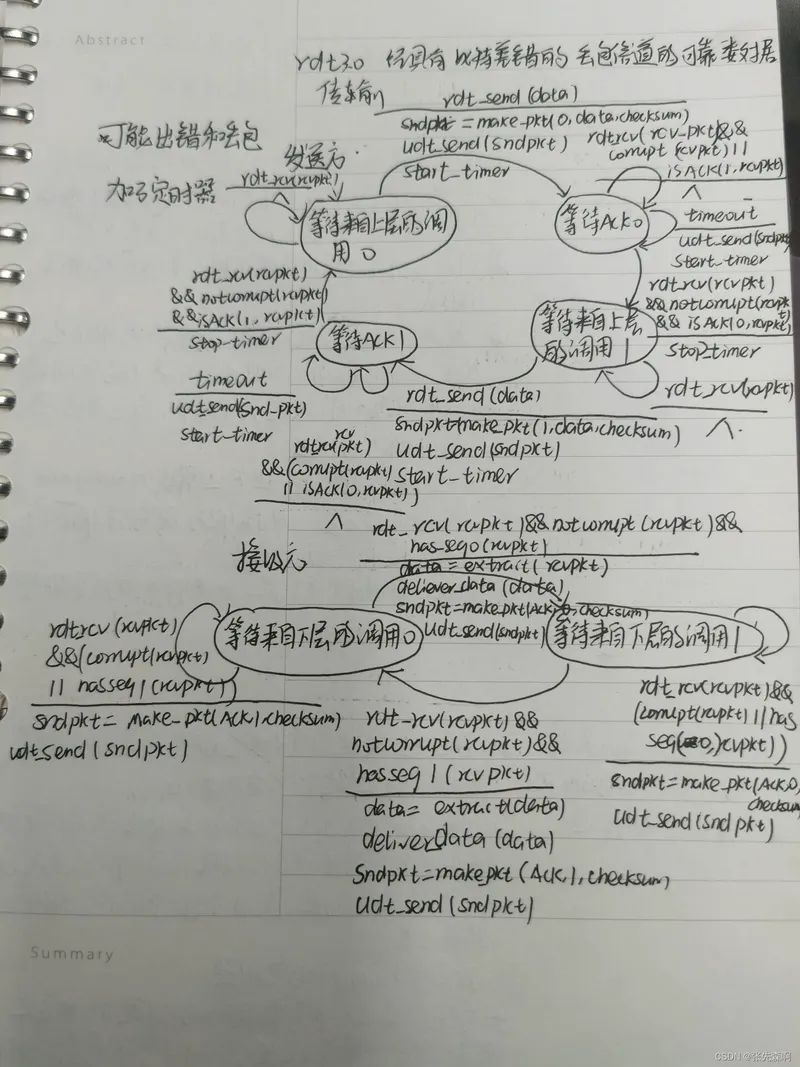 Abstract
rdt3.0 经具有比特差错的丢包信道的可靠数据
传输
rdt_send(data)
sndpkt=make_pkt(0,data,checksum)
udt_send(sndpkt)
start_timer
可能出错和丢包
加了定时器
发送方
rdt_rcv(rcvpkt)
Λ
rdtrcv(rcv_pkt)&&
corrupt(rcvpkt)||
isACK(1,rcvpkt)
Λ
等待来自上层的调
用0
等待Ack0
timeout
udt_send(sndpkt
start_timer
rdt_rcv(rcvpkt)
&&notcorrupt(rcvpkt)
&&isAck(1,rcvpkt)
stop_timer
rdt_rcv(rcvpkt)
&&notcorrupt(rcvpkt)
&&isAck(0,rcvpkt)
stop_timer
等待ACK1
等待来自上层
的调用1
rdt_rcv(rcvpkt)
Λ
timeout
udt_send(snd_pkt)
start_timer
rdt_send(data)
sndpkt(make_pkt(1,data,checksum)
udt_send(sndpkt)
start_timer
rdtrcv(rcvpkt)
&&(corrupt(rcvpkt)
||isACK(0,rcvpkt))
Λ
接收方
rdt_rcv(rcvpkt)&&notcorrupt(rcvpkt)&&
has_seq0(rcvpkt)
data=extrait(rcvpkt)
deliever_data(data)
sndpkt=make_pkt(Ack,0,checksum)
udt_send(sndpkt)
等待来自下层的调用0
等待来自下层的调用1
rdtrcv(rcvpkt)
&&(corrupt(rcvpkt)
||hasseq1(rcvpkt)
sndpkt=make_pkt(ACK,1,checksum)
udt_send(sndpkt)
rdt_rcv(rcvpkt)&&
notcorrupt(rcvpkt)&&
hasseq1(rcvpkt)
data=extract(data)
deliver_data(data)
Sndpkt=make_pkt(Ack,1,checksum)
udt_send(sndpkt)
rdt_rcv(rcvpkt)&&
(corrupt(rcvpkt)||has
seq(0,)rcvpkt))
sndpkt=make_pkt(Ack,0,
checksum
udt_send(sndpkt)
Summary